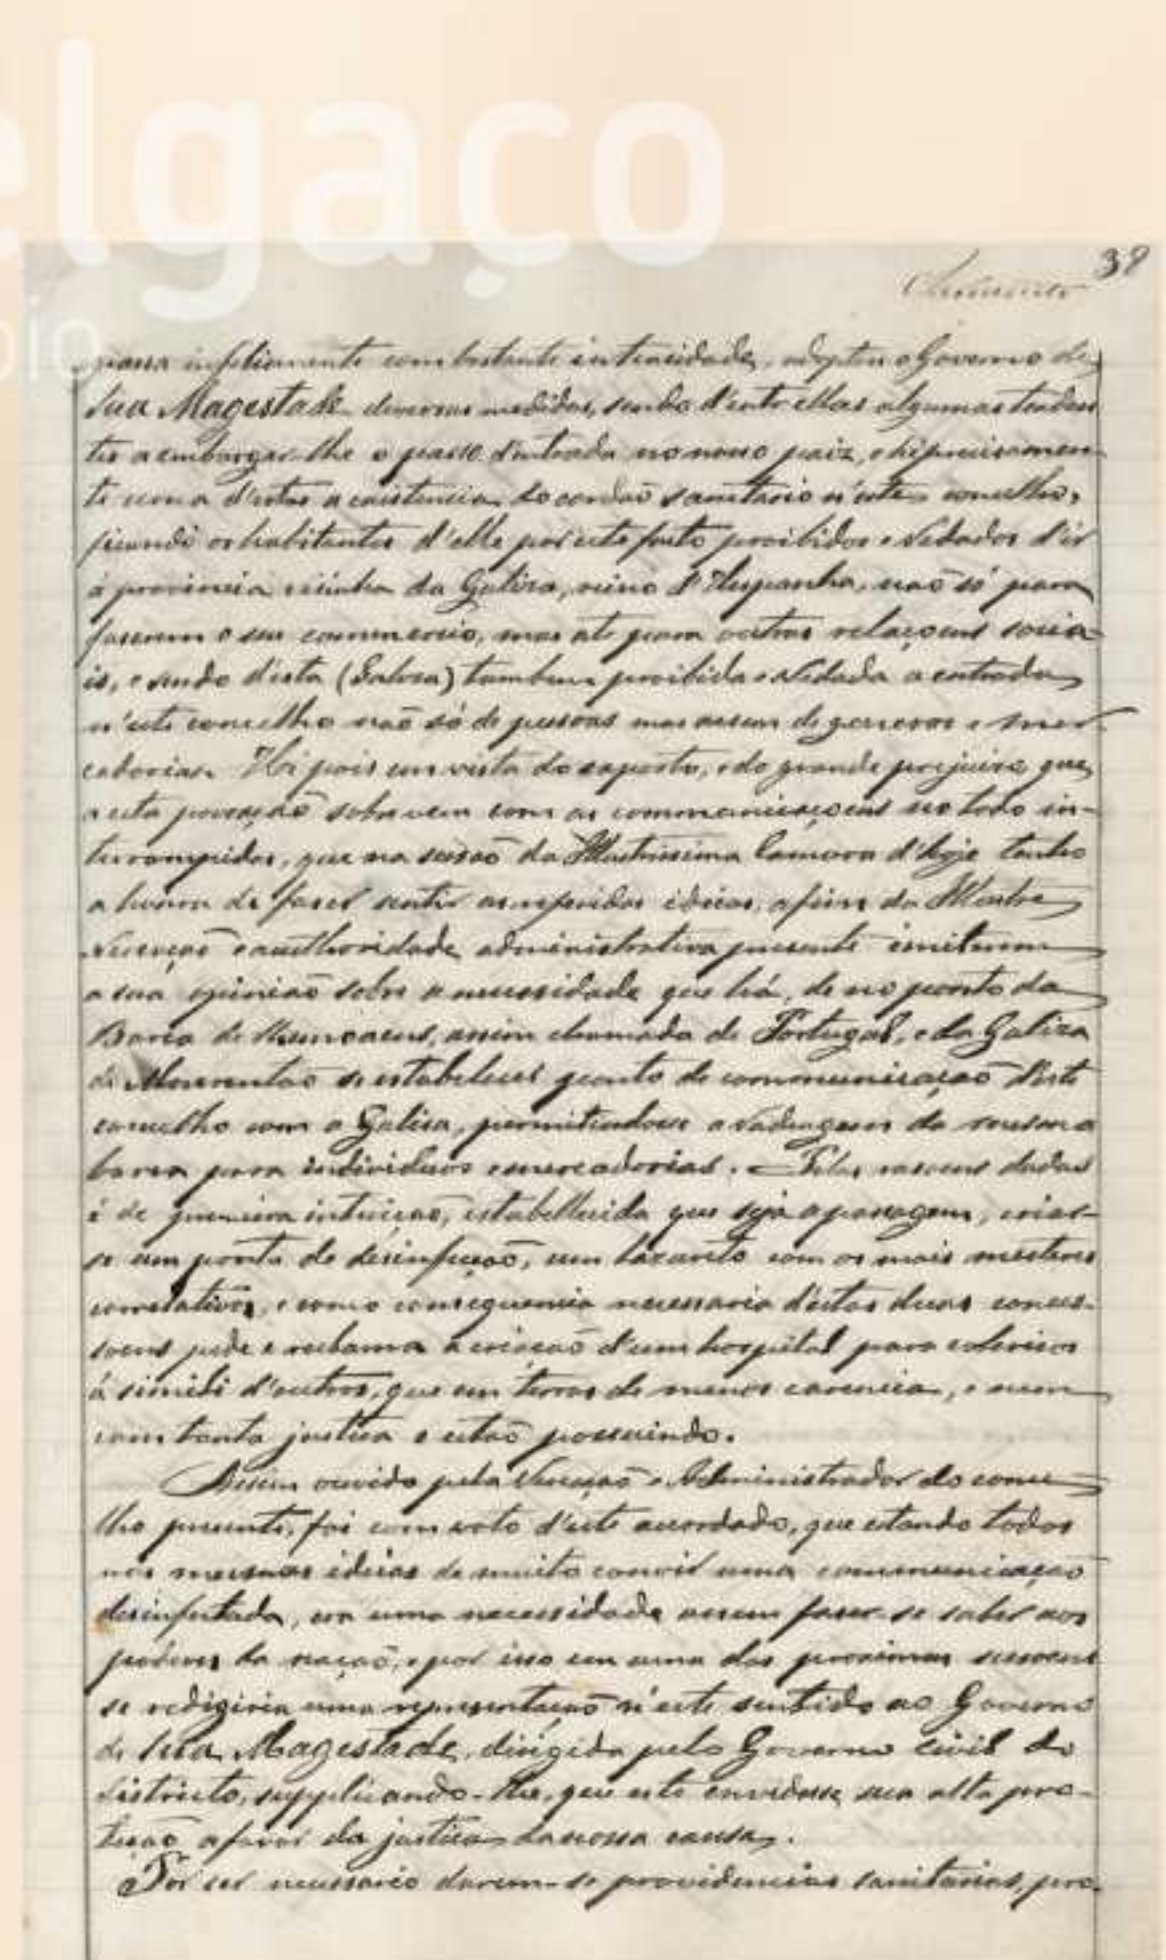 elgaço
pio
38
grassa infelismente com bastante intensidade, adoptou o Governo de
Sua Magestade diversas medidas, sendo d'entre ellas algumas tenden
tes a embargar-lhe o passo d'entrada no nosso paiz, e hé precisamen-
te uma d'estas a existencia do cordaõ sanitario n'este concelho,
ficando os habitantes d'elle por este facto proibidos e vedados d'ir
á provincia visinha da Galiza, reino d'Hespanha, naõ só para
faserem o seu commercio, mas até para outras relaçoens socia-
is, e sendo d'esta (Galiza) tambem proibida e vedada a entrada
n'este concelho naõ só de pessoas mas assim de generos e mer-
cadorias. Hé pois em vista do exposto, e do grande prejuiso que
a esta povoaçaõ sobrevem com as communicaçoens no todo in-
terrompidas, que na sessaõ da Illustrissima Camara d'hoje tenho
a honra de faser sentir as referidas ideias, afim da Illustre
Vereaçaõ e authoridade administrativa presente emitirem
a sua opiniaõ sobre a necessidade que há, de no ponto da
Barca de assim chamada de Portugal, e da Galiza
de se estabelecer ponto de communicaçaõ d'este
concelho com a Galiza, permitindose a vadeagem da mesma
barca para individuos e mercadorias. Pelas rasoens dadas
é de primeira intuiçaõ, estabellecida que seja a passagem, criar-
se um ponto de desinfecçaõ, um lazareto com os mais misteres
correlativos, e como consequencia necessaria d'estas duas conces-
soens pede e reclama a criaçaõ d'um hospital para colericos
á simili d'outros, que em terras de menos carencia, e nem
com tanta justiça o estaõ possuindo.
Assim ouvido pela Vereaçaõ e Administrador do conce-
lho presente, foi com voto d'este accordado, que estando todos
nas mesmas ideias de muito convir uma communicaçaõ
desinfectada, era uma necessidade assim faser-se saber aos
poderes da naçaõ, e por isso em uma das proximas sessoens
se redigiria uma representaçaõ n'este sentido ao Governo
de Sua Magestade, dirigida pelo Governo civil do
districto, supplicando-lhe, que este envidasse sua alta pro-
teçaõ a favor da justiça da nossa causa.
Por ser necessario darem-se providencias sanitarias, pro-